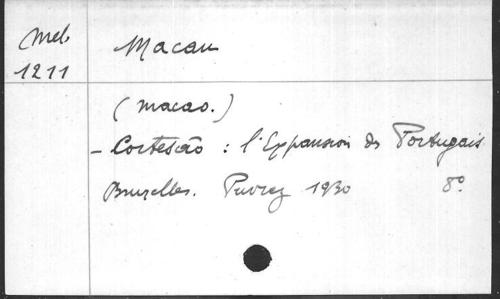 Mel
1211
Macau
(macao.)
- Cortesão : l'Expansion des Portugais
Bruxelles. Puvrez 1930 8º